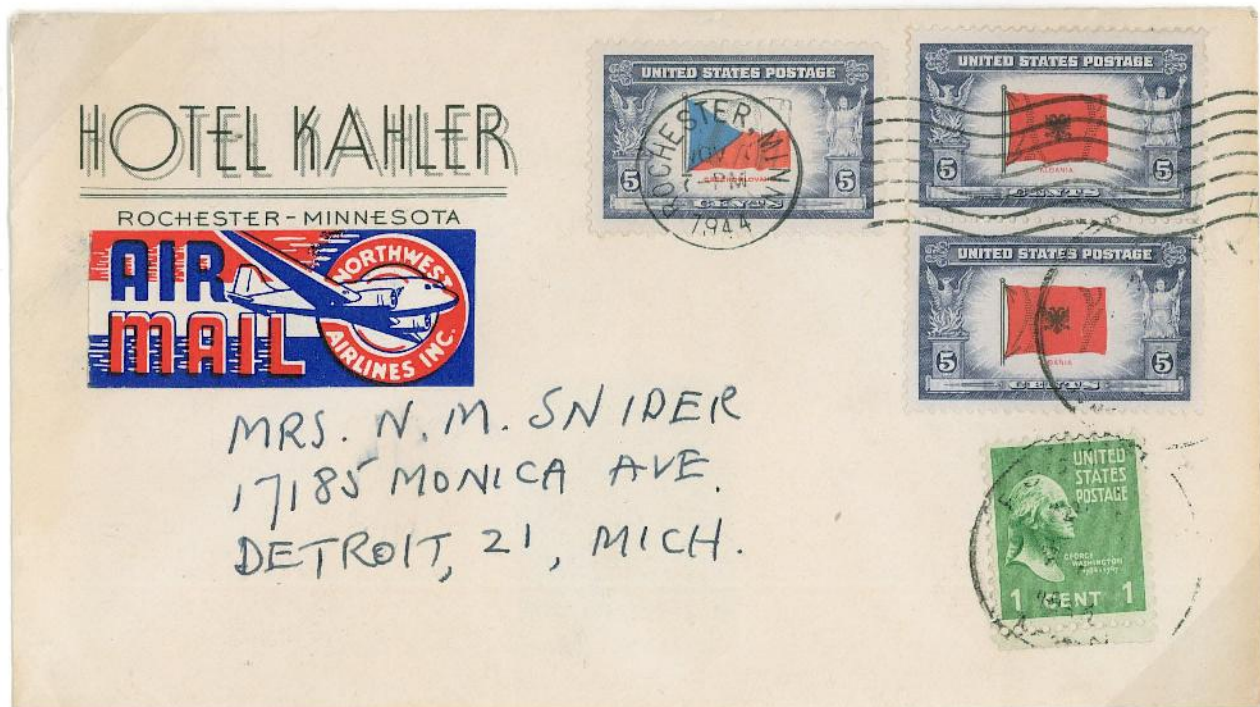 HOTEL KAHLER
ROCHESTER-MINNESOTA
AIR
MAIL
NORTHWEST
AIRLINES INC.
UNITED STATES POSTAGE
5 5
CENTS
ROCHESTER, MINN
7-PM
1944
UNITED STATES POSTAGE
ALBANIA
5 5
CENTS
UNITED STATES POSTAGE
ALBANIA
5 5
CENTS
MRS. N. M. SNIDER
17185 MONICA AVE.
DETROIT, 21, MICH.
UNITED
STATES
POSTAGE
GEORGE
WASHINGTON
1 CENT 1